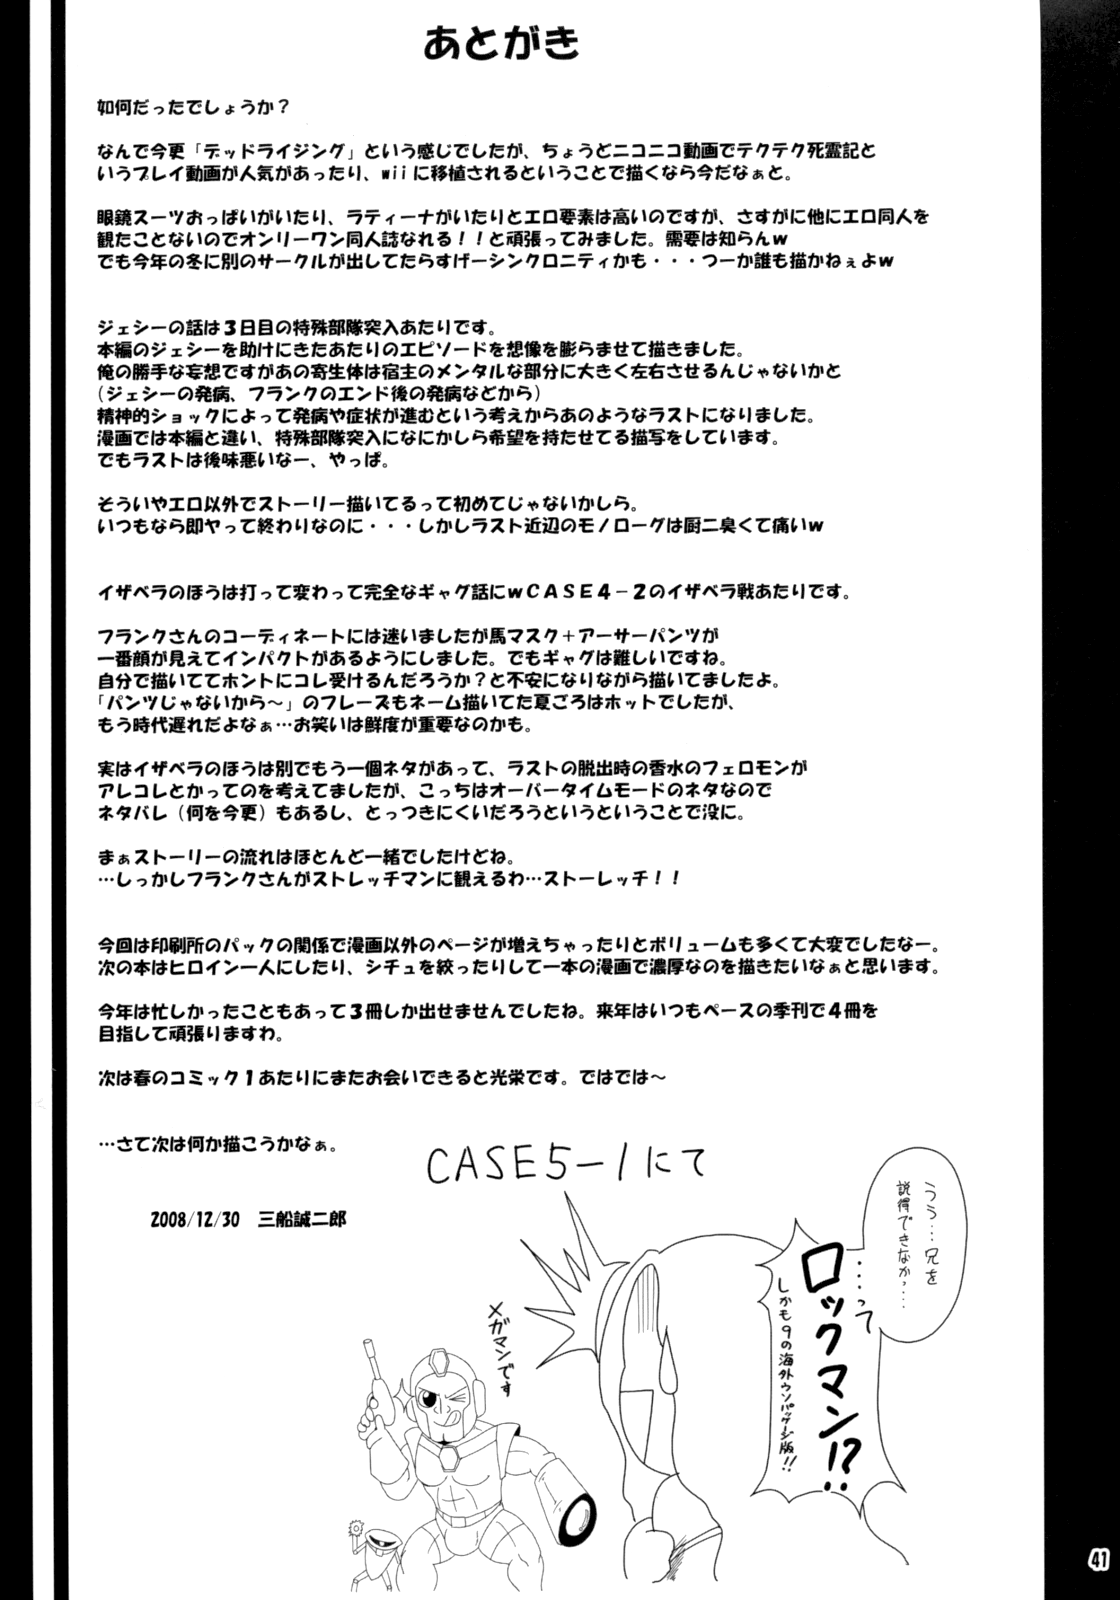 あとがき
如何だったでしょうか？
なんで今更「デッドライジング」という感じでしたが、ちょうどニコニコ動画でテクテク死霊記と
いうプレイ動画が人気があったり、wiiに移植されるということで描くなら今だなぁと。
眼鏡スーツおっぱいがいたり、ラティーナがいたりとエロ要素は高いのですが、さすがに他にエロ同人を
観たことないのでオンリーワン同人誌なれる！！と頑張ってみました。需要は知らんｗ
でも今年の冬に別のサークルが出してたらすげーシンクロニティかも・・・つーか誰も描かねぇよｗ
ジェシーの話は３日目の特殊部隊突入あたりです。
本編のジェシーを助けにきたあたりのエピソードを想像を膨らませて描きました。
俺の勝手な妄想ですがあの寄生体は宿主のメンタルな部分に大きく左右させるんじゃないかと
（ジェシーの発病、フランクのエンド後の発病などから）
精神的ショックによって発病や症状が進むという考えからあのようなラストになりました。
漫画では本編と違い、特殊部隊突入になにかしら希望を持たせてる描写をしています。
でもラストは後味悪いなー、やっぱ。
そういやエロ以外でストーリー描いてるって初めてじゃないかしら。
いつもなら即ヤって終わりなのに・・・しかしラスト近辺のモノローグは厨二臭くて痛いｗ
イザベラのほうは打って変わって完全なギャグ話にｗＣＡＳＥ４－２のイザベラ戦あたりです。
フランクさんのコーディネートには迷いましたが馬マスク＋アーサーパンツが
一番顔が見えてインパクトがあるようにしました。でもギャグは難しいですね。
自分で描いててホントにコレ受けるんだろうか？と不安になりながら描いてましたよ。
「パンツじゃないから～」のフレーズもネーム描いてた夏ごろはホットでしたが、
もう時代遅れだよなぁ…お笑いは鮮度が重要なのかも。
実はイザベラのほうは別でもう一個ネタがあって、ラストの脱出時の香水のフェロモンが
アレコレとかってのを考えてましたが、こっちはオーバータイムモードのネタなので
ネタバレ（何を今更）もあるし、とっつきにくいだろうというということで没に。
まぁストーリーの流れはほとんど一緒でしたけどね。
…しっかしフランクさんがストレッチマンに観えるわ…ストーレッチ！！
今回は印刷所のパックの関係で漫画以外のページが増えちゃったりとボリュームも多くて大変でしたなー。
次の本はヒロイン一人にしたり、シチュを絞ったりして一本の漫画で濃厚なのを描きたいなぁと思います。
今年は忙しかったこともあって３冊しか出せませんでしたね。来年はいつもペースの季刊で４冊を
目指して頑張りますわ。
次は春のコミック１あたりにまたお会いできると光栄です。ではでは～
…さて次は何か描こうかなぁ。
2008/12/30　三船誠二郎
CASE5－1にて
うう…兄を
説得できなか…
…って
ロックマン!?‥
しかも9の海外ウソパッケージ版!!
メガマンです
41